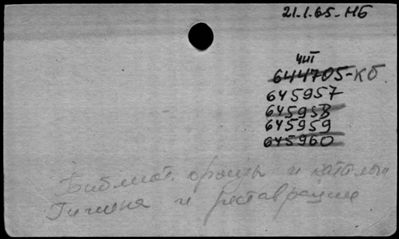 21.1.65-НБ
чит
644705-КБ
645957
645958
645959
645960
Библиот. фонды и каталоги
Гигиена и реставрация